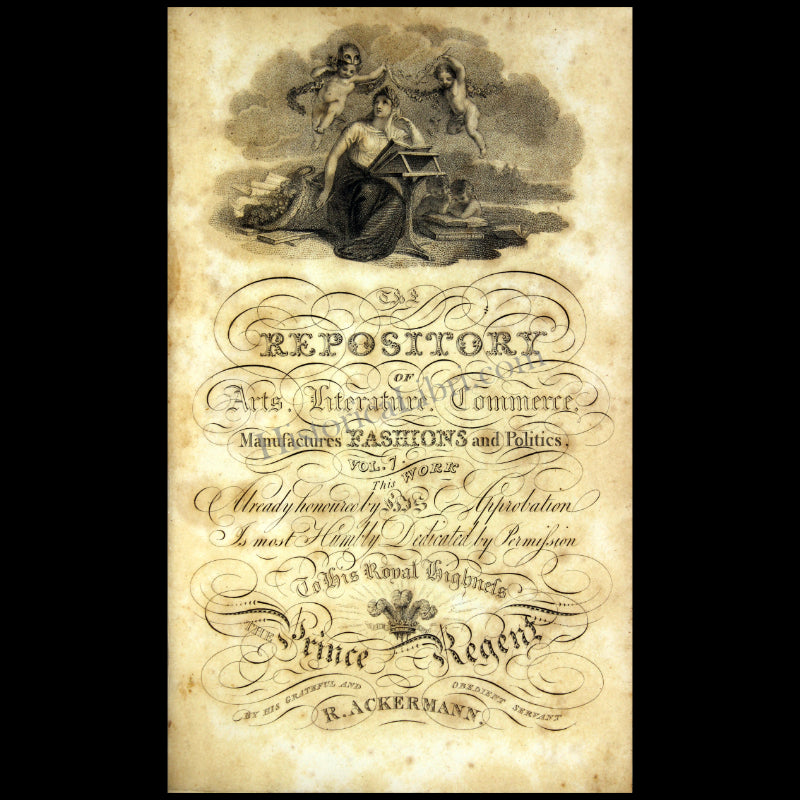 The
REPOSITORY
OF
Arts, Literature, Commerce,
Manufactures FASHIONS and Politics,
VOL. 7.
This WORK
Already honoured by HIS Approbation
Is most Humbly Dedicated by Permiſsion
To His Royal Highneſs
THE Prince Regent
BY HIS GRATEFUL AND OBEDIENT SERVANT
R. ACKERMANN.
HistoricaLibri.com